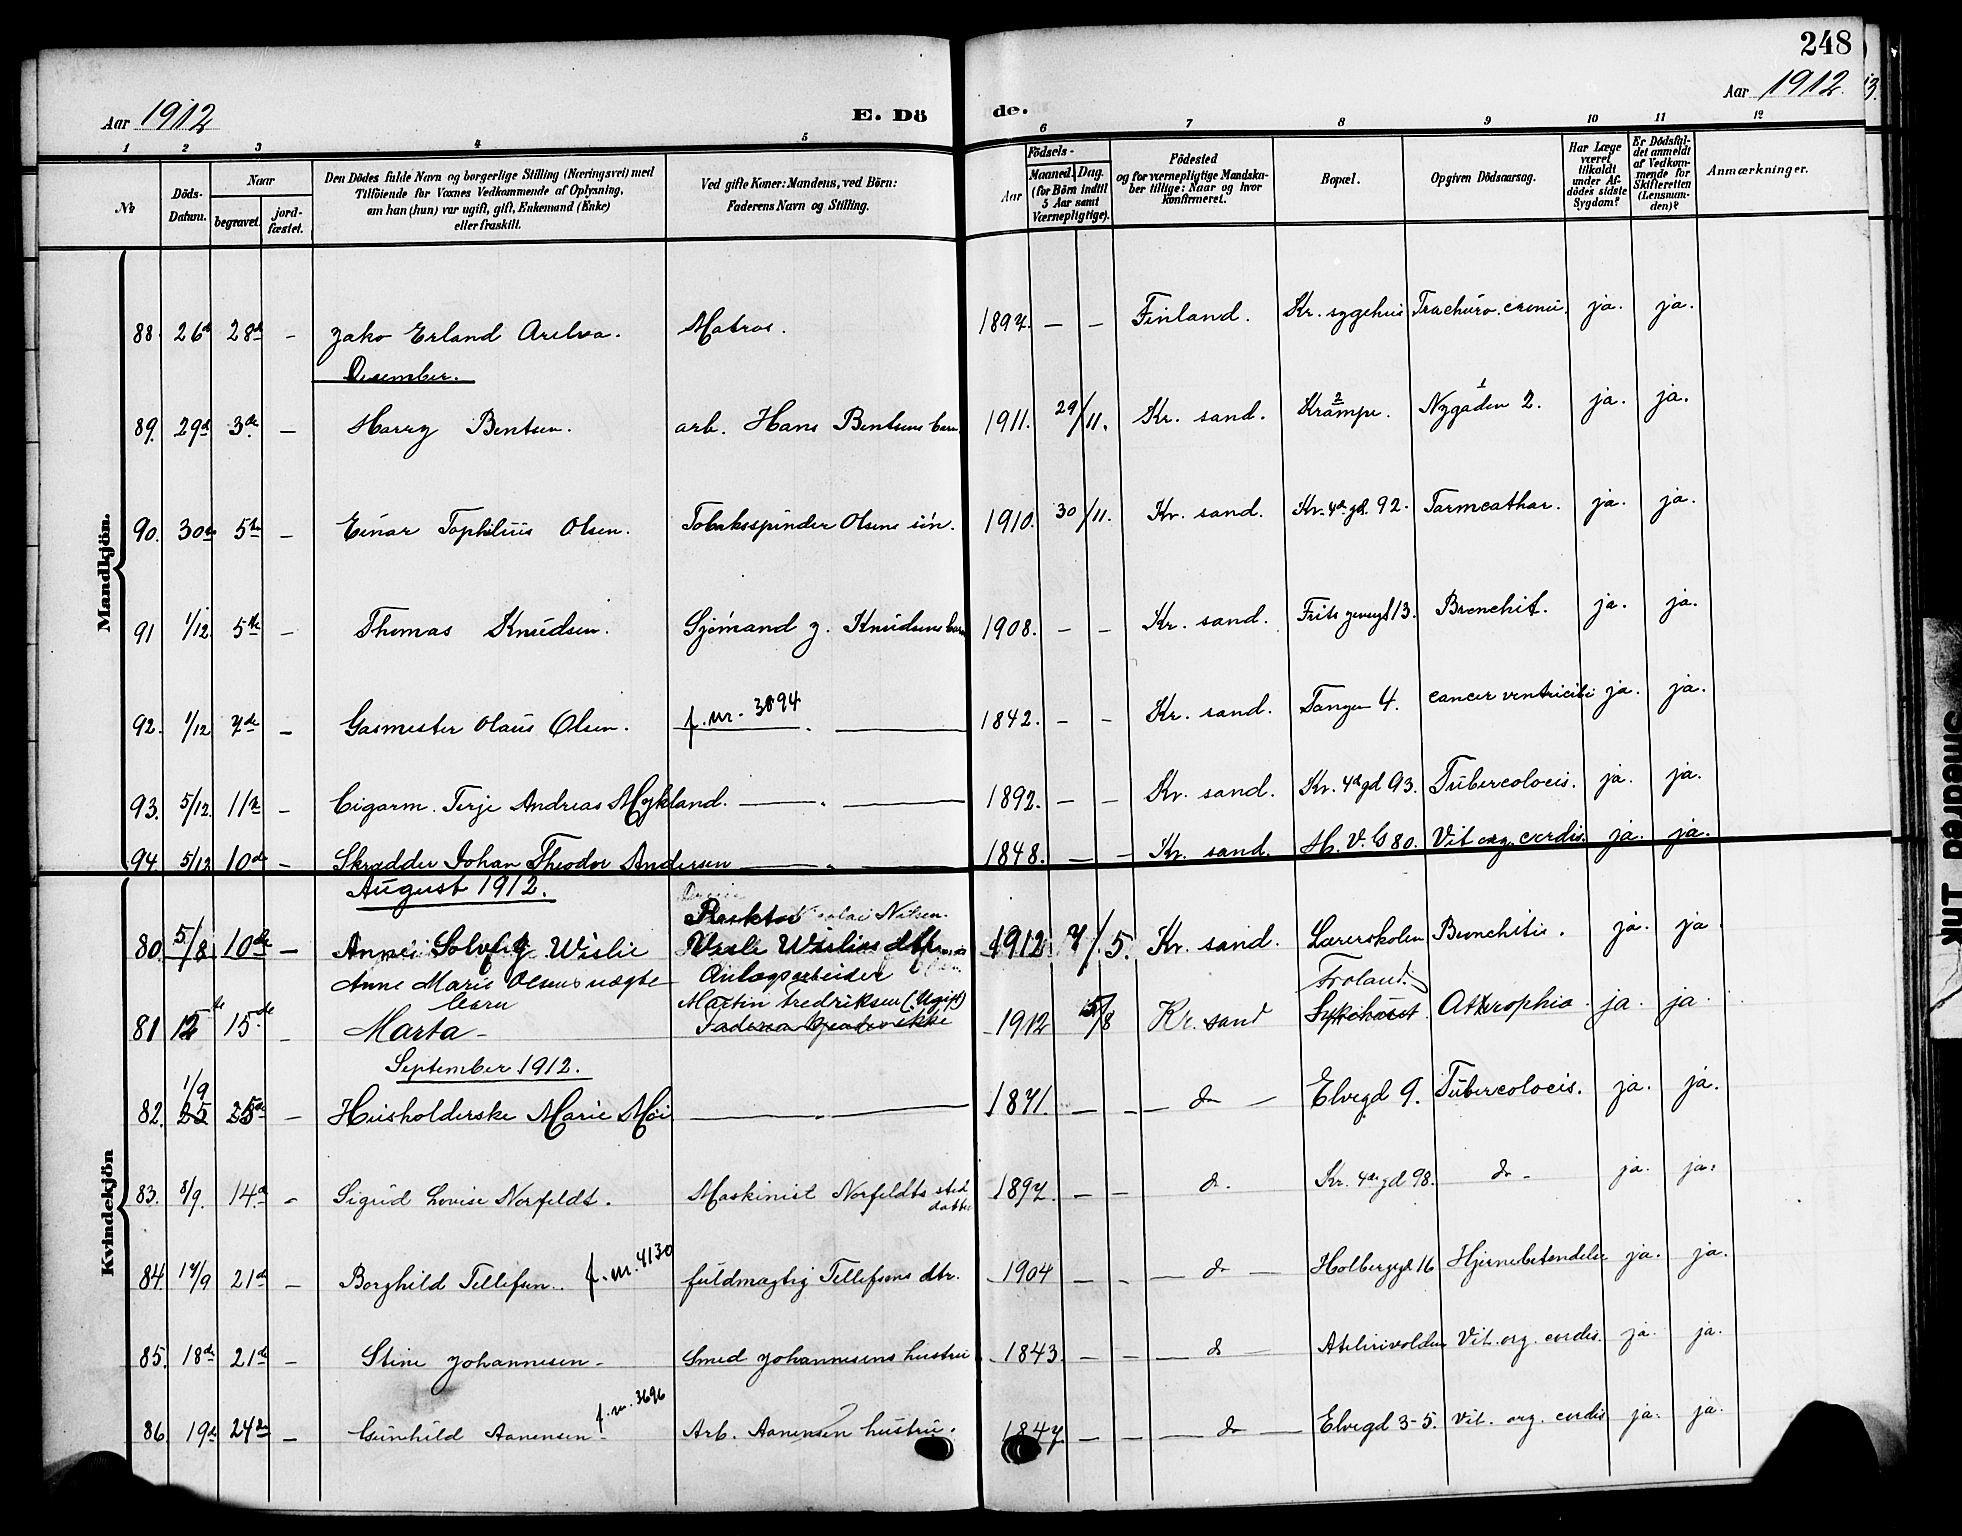 248
Aar 1912
E. Döde.
Aar 1912.
1 2 3 4 5 6 7 8 9 10 11 12
No
Döds-Datum.
Naar
begravet.
jord-fæstet.
Den Dödes fulde Navn og borgerlige Stilling (Næringsvei) med
Tilföiende for Voxnes Vedkommende af Oplysning,
om han (hun) var ugift, gift, Enkemand (Enke)
eller fraskilt.
Ved gifte Koner: Mandens, ved Börn:
Faderens Navn og Stilling.
Födsels-
Aar
Maaned. Dag.
(for Börn indtil
5 Aar samt
Værnepligtige).
Födested
og for værnepligtige Mandska-
ber tillige: Naar og hvor
konfirmeret.
Bopæl.
Opgiven Dödsaarsag.
Har Læge
været
tilkaldt
under Af-
dödes sidste
Sygdom?
Er Dödsfal-
det anmeldt
af Vedkom-
mende for
Skifteretten
(Lensman-
den)?
Anmærkninger.
Mandkjön.
88. 26d 28de - Jako Erland Arelva. Matros. 1892. - - Finland. Kr. sygehus ja. ja.
Desember.
89. 29d 3de - Harry Bentsen. arb. Hans Bentsens barn. 1911. 29/11. Kr. sand. Krampe. 2 Nygaden 2. ja. ja.
90. 30de 5te - Einar Tophilius Olsen. Tobaksspinder Olsens sön. 1910. 30/11. Kr. sand. Kr. 4de gd. 92. Tarmcathar. ja. ja.
91 1/12. 5te - Thomas Knudsen. Sjömand J. Knudsens barn 1908. - - Kr. sand. 13. Bronchit. ja. ja.
92. 1/12 7de - Gasmester Olaus Olsen. f. nr. 3894 1842. - - Kr. sand. Tangen 4. cancer ventriculi ja. ja.
93. 5/12. 11te - Cigarm. Terje Andreas Mykland. - . - 1892. - - Kr. sand. Kr. 4de gd 93. Tubercolocis. ja. ja.
94. 5/12 10de - Skrædder Johan Theodor Andersen - . - 1848. - - Kr. sand. H. V. G 80. Vit. org. cordis. ja. ja.
Kvindekjön
August 1912.
Rektor
80. 5/8 10de - Anne Solveig Wislie Visle Wislies dtr. 1912. 7/5. Kr. sand. Lærerskolen Bronchitis. ja. ja.
Anne Marie Olsens uægte Anlægsarbeider Froland.
barn Martin Fredriksen (Ugift)
81 12te 15de - Marta - 1912 5/8 Kr. sand Sykehuset. Athrophia. ja. ja.
September 1912.
82. 1/9 25de - Husholderske Marie Moi - . - 1871 - - - do - Elvegd 9. Tubercolocis. ja. ja.
83. 8/9. 14de - Sigrid Lovise Norfeldt. Maskinist Norfeldts sted datter 1897. - - do. Kr. 4de gd 98. do - ja. ja.
84. 17/9 21de - Borghild Tellefsen. f. nr. 4130 fuldmægtig Tellefsens dtr. 1904 - - - do - Holbergsgd 16 Hjernebetændelse ja. ja.
85. 18de 21de - Stine Johannesen - Smed Johannesens hustru 1843 - - - do - Vit. org. cordis. ja. ja.
86 19de 24de - Gunhild Aanensen - f. nr. 3696 Arb. Aanensen hustru. 1847 - - - do - Elvegd 3-5. Vit. org. cordis ja. ja.